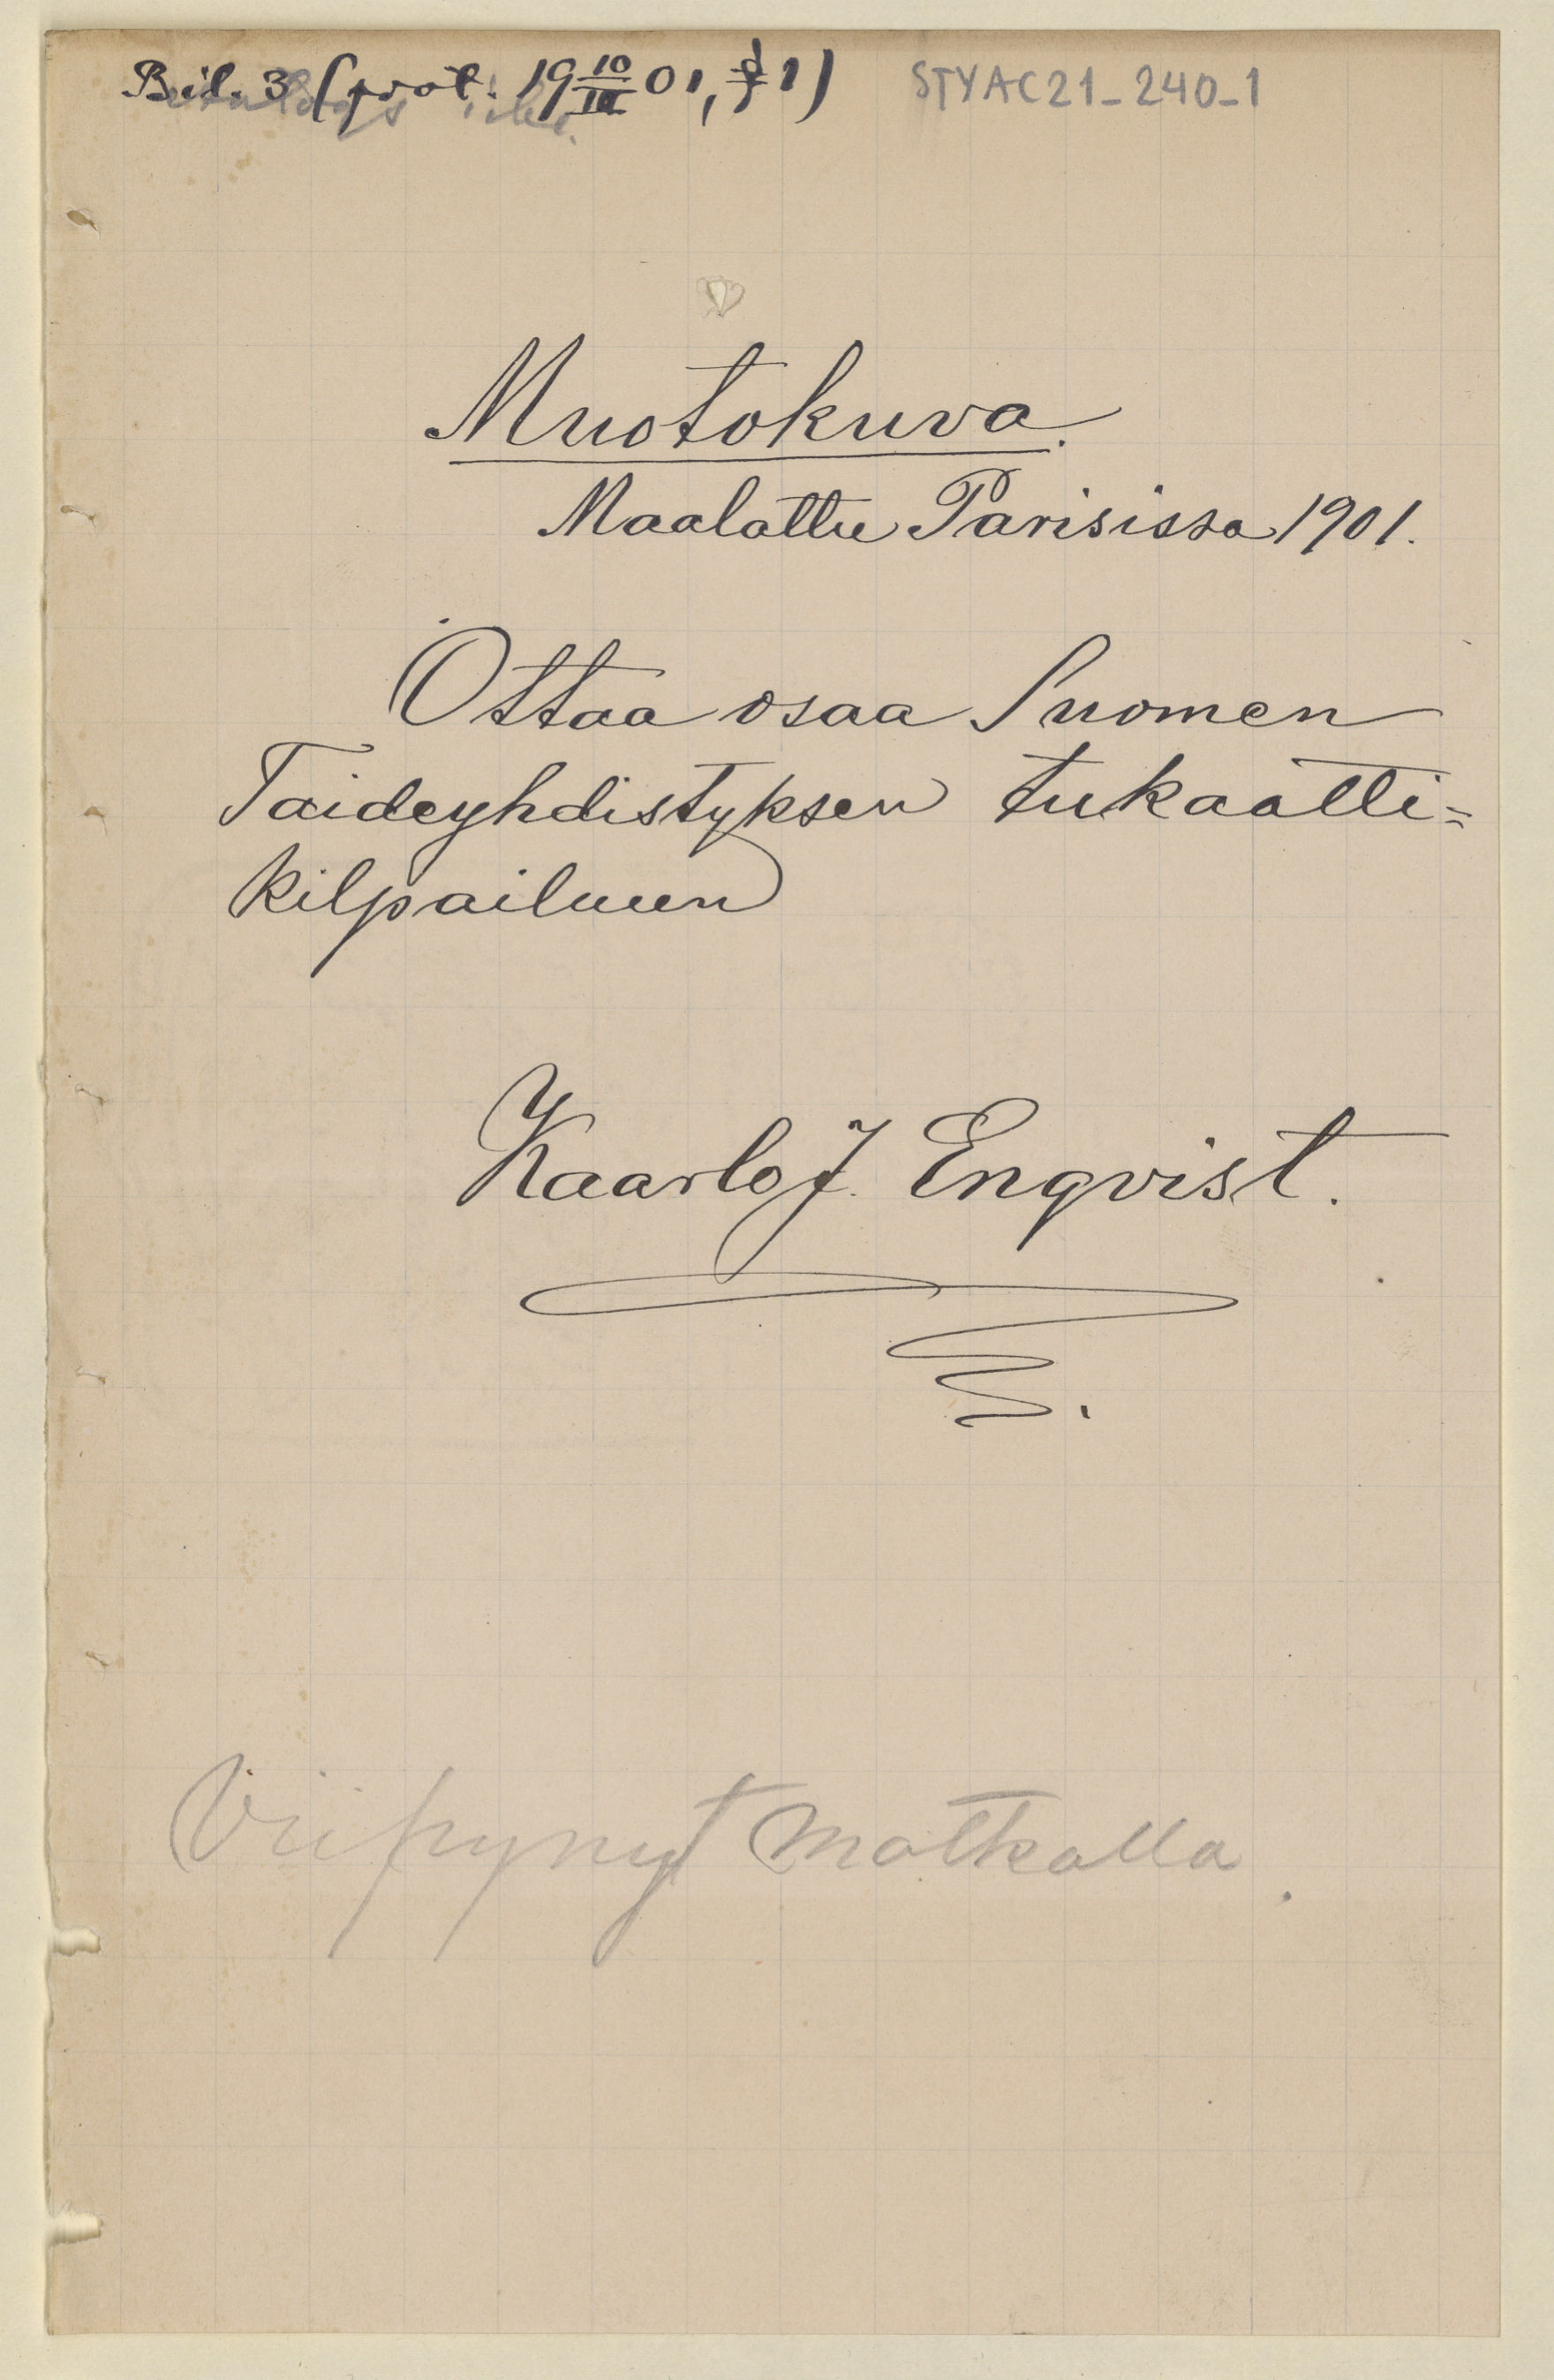 Bil. 3 (prot. 19 10/III 01, § 1) STYAC21_240_1
Muotokuva.
Maalattu Parisissa 1901.
Ottaa osaa Suomen
Taideyhdistyksen tukaatti=
kilpailuun
Kaarlo J. Enqvist.
Viipynyt matkalla.